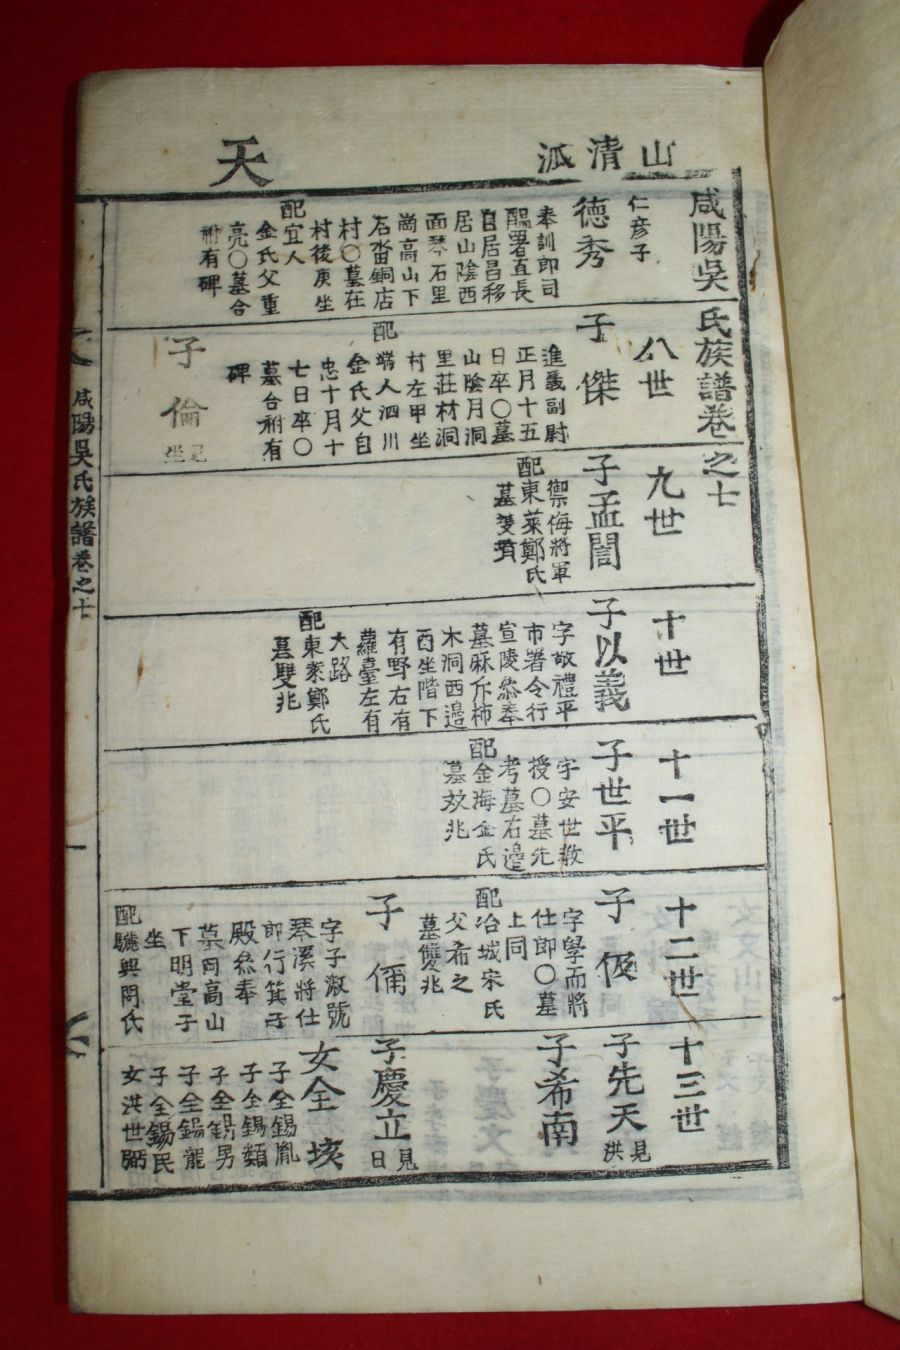 天
山清派
咸陽吳氏族譜卷之七
仁彦子
德秀
奉訓郎司
醞署直長
自居昌移
居山陰西
面琴石里
尚高山下
石沓銅店
村〇墓在
村後庚坐
配宜人
金氏父重
亮〇墓合
祔有碑
八世
子傑
進義副尉
正月十五
日卒〇墓
山陰月洞
里莊材洞
村左甲坐
配端人泗川
金氏父自
忠十月十
七日卒〇
墓合祔有
碑
子倫
見
坐
九世
子孟誾
禦侮將軍
配東萊鄭氏
墓雙墳
十世
子以義
字敬禮平
市署令行
宣陵叅奉
墓麻斥柿
木洞西邉
酉坐階下
有野右有
蘿臺左有
大路
配東萊鄭氏
墓雙兆
十一世
子世平
字安世教
授〇墓先
考墓右邉
配金海金氏
墓双兆
十二世
子伋
字學而將
仕郎〇墓
上同
配冶城宋氏
父希之
墓雙兆
子侢
字子淑號
琴溪將仕
郎行箕子
殿叅奉
墓同高山
下明堂子
坐
配驪興閔氏
十三世
子先天
見
洪
子希南
子慶立
見
日
女全垓
子全錫胤
子全錫類
子全錫男
子全錫龍
子全錫民
女洪世弼
咸陽吳氏族譜卷之七
一